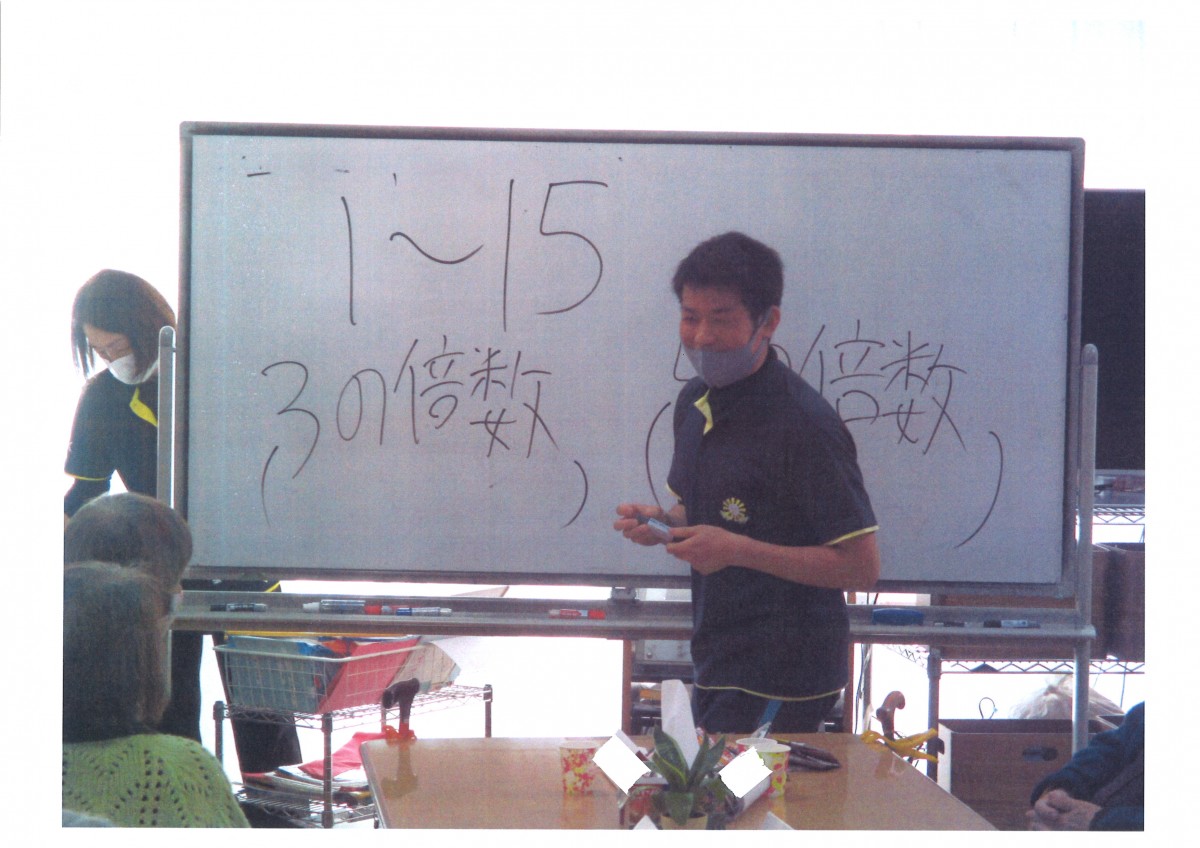 1～15
3の倍数
の倍数
(     )
(     )